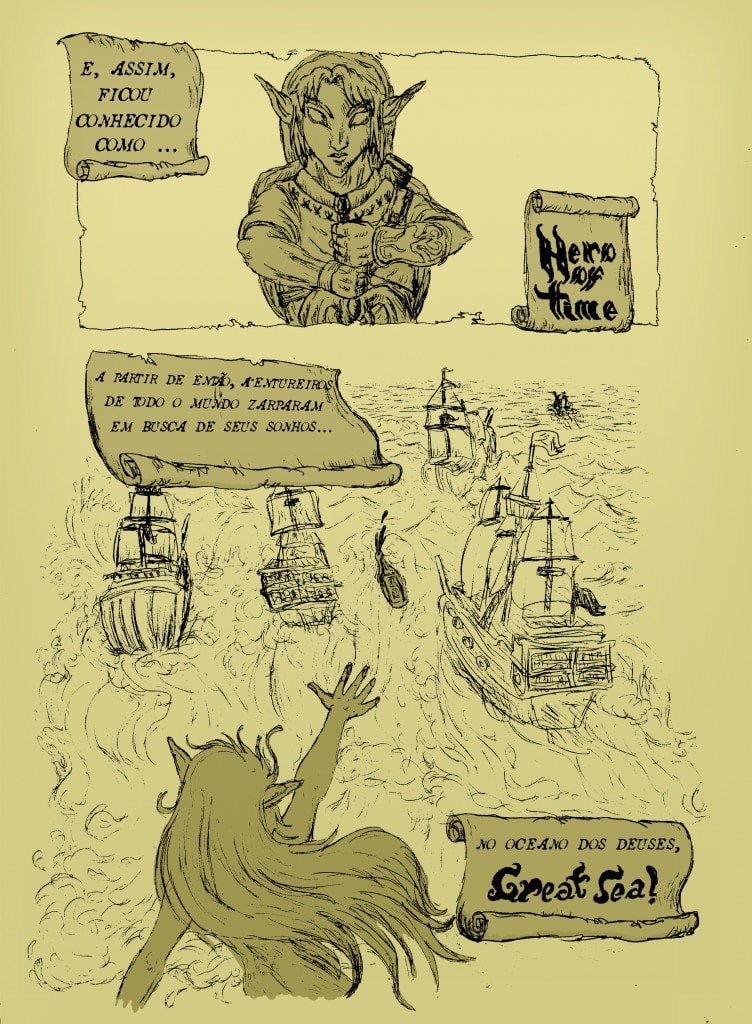 E, ASSIM,
FICOU
CONHECIDO
COMO ...
Hero
of
time
A PARTIR DE ENTÃO, AVENTUREIROS
DE TODO O MUNDO ZARPARAM
EM BUSCA DE SEUS SONHOS...
NO OCEANO DOS DEUSES,
Great Sea!